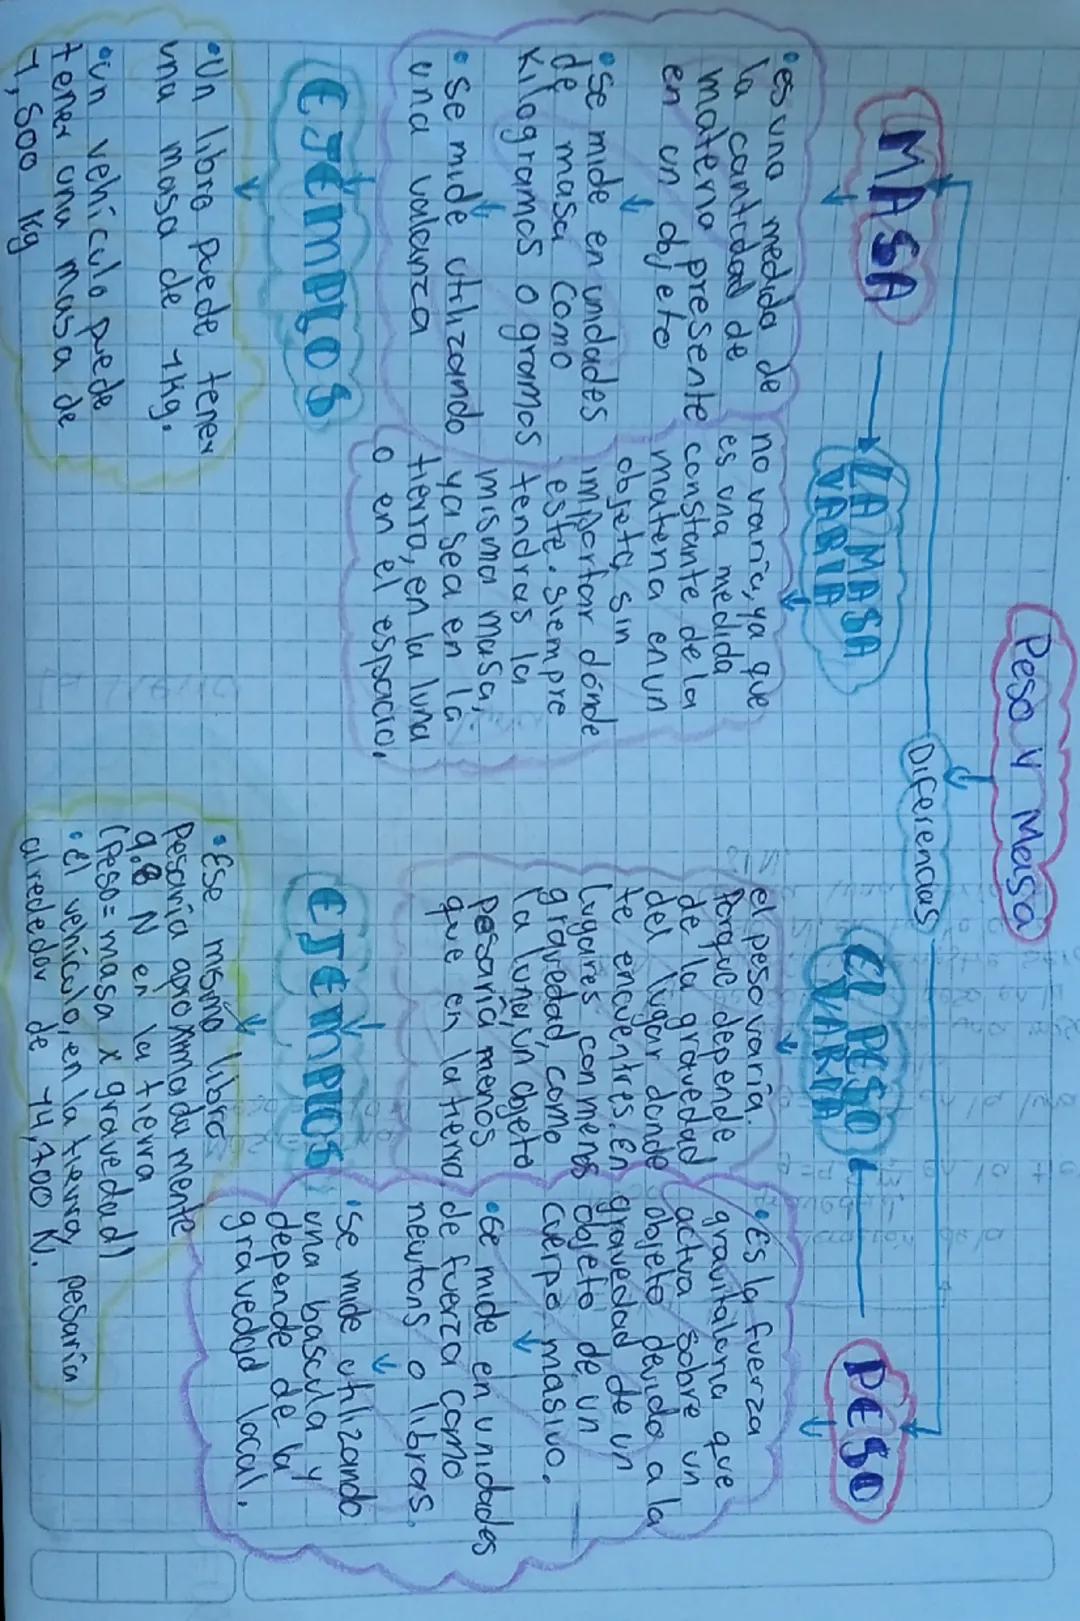 Peso y Masa
Diferencias
MASA
•es una medida de
la cantidad de
materia presente
en un objeto
•se mide en unidades
de masa como
Kilogramos o gramos
•se mide utilizando
una valanza
LA MASA
VARIA
no varía, ya que
es una medida
constante de la
materia en un
objeto, sin
importar dónde
este. siempre
tendras la
misma masa,
ya sea en la
tierra, en la luna
o en el espacio.
EJEMPLOS
•Un libro puede tener
una masa de 1kg.
•un vehículo puede
tener una masa de
1,500 kg
EL PESO
VARIA
el peso varía
Porque depende
de la gravedad
del lugar donde
te encuentres. En
Lugares con menos
gravedad, como
la luna, un objeto
pesaría menos
que en la tierra
PESO
•Es la fuerza
gravitatoria que
actua sobre un
objeto devido a la
gravedad de un
objeto de un
cuerpo masivo.
•se mide en unidades
de fuerza como
newtons o libras.
•se mide utilizando
una bascula y
depende de la
gravedad local.
EJEMPLOS
•Ese mismo libro
Pesaría aproximadamente
9.8 N en la tierra
(peso = masa x gravedad)
•El vehículo, en la tierra, pesaría
alrededor de 14,700 N.